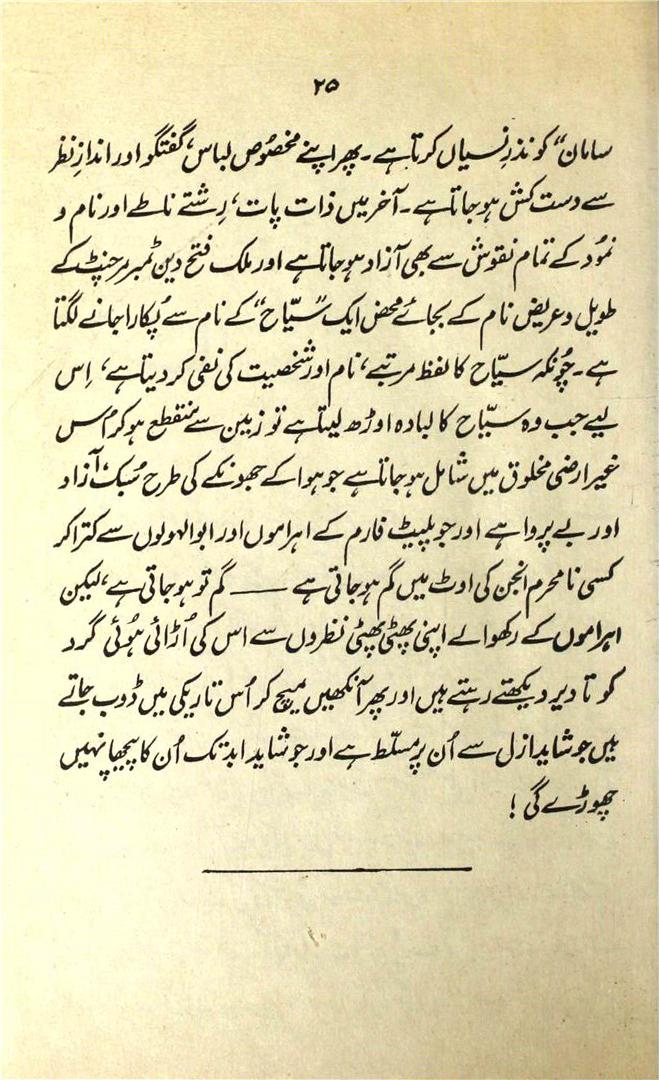 ۲۵
سامان“ کو نذرِ نسیاں کرتا ہے۔ پھر اپنے مخصُوص لباس، گفتگو اور اندازِ نظر
سے دست کش ہو جاتا ہے۔ آخر میں ذات پات، رشتے ناطے اور نام و
نمُود کے تمام نقوش سے بھی آزاد ہو جاتا ہے اور ملک فتح دین ٹمبر مرچنٹ کے
طویل و عریض نام کے بجائے محض ایک ”سیّاح“ کے نام سے پُکارا جانے لگتا
ہے۔ چُونکہ سیّاح کا لفظ مرتبے، نام اور شخصیت کی نفی کر دیتا ہے، اِس
لیے جب وہ سیّاح کا لبادہ اوڑھ لیتا ہے تو زمین سے منقطع ہو کر اُس
غیر ارضی مخلوق میں شامل ہو جاتا ہے جو ہوا کے جھونکے کی طرح سُبک، آزاد
اور بے پروا ہے اور جو پلیٹ فارم کے اہراموں اور ابوالہولوں سے کترا کر
کسی نامحرم انجن کی اوٹ میں گم ہو جاتی ہے —— گم تو ہو جاتی ہے، لیکن
اہراموں کے رکھوالے اپنی پھٹی پھٹی نظروں سے اس کی اُڑائی ہُوئی گرد
کو تا دیر دیکھتے رہتے ہیں اور پھر آنکھیں میچ کر اُس تاریکی میں ڈوب جاتے
ہیں جو شاید ازل سے اُن پر مسلّط ہے اور جو شاید ابد تک اُن کا پیچھا نہیں
چھوڑے گی!